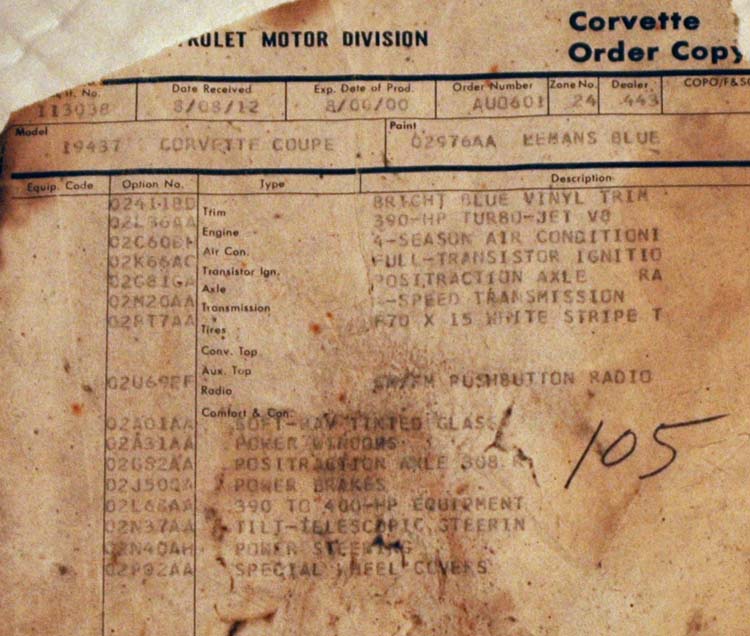 Corvette
ROLET MOTOR DIVISION
Order Copy
No. Date Received Exp. Date of Prod. Order Number Zone No. Dealer COPO/F&SO
113038 8/08/12 8/00/00 AU0601 24 443
Model Paint
19437 CORVETTE COUPE 02976AA LEMANS BLUE
Equip. Code Option No. Type Description
02411BD Trim BRIGHT BLUE VINYL TRIM
02L36AA Engine 390-HP TURBO-JET V8
02C60 Air Con. 4-SEASON AIR CONDITIONI
02K66AC Transistor Ign. FULL-TRANSISTOR IGNITIO
02G81GA Axle POSITRACTION AXLE RA
02M20AA Transmission 4-SPEED TRANSMISSION
02PT7AA Tires F70 X 15 WHITE STRIPE T
Conv. Top
Aux. Top
02U69EF Radio PUSHBUTTON RADIO
Comfort & Con.
02A01AA SOFT-RAY TINTED GLASS
02A31AA POWER WINDOWS
02GS2AA POSITRACTION AXLE 308 R
02J50 POWER BRAKES
390 TO 400-HP EQUIPMENT
02N37AA TILT-TELESCOPIC STEERIN
02N40AH POWER STEERING
02P92AA SPECIAL WHEEL COVERS
105